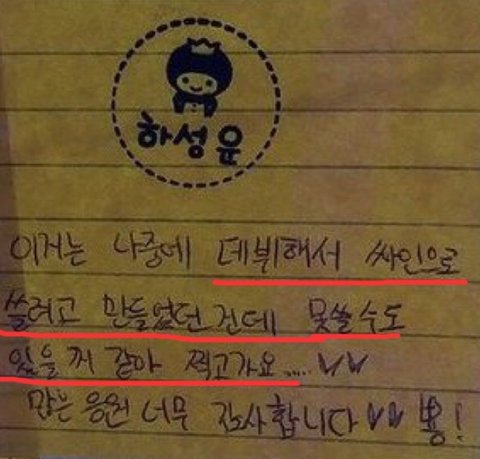 하성윤
이거는 나중에 데뷔해서 싸인으로
쓸려고 만들었던건데 못쓸수도
있을꺼 같아 찍고가요..... ♥♥
많은 응원 너무 감사합니다 ♥♥ 뿅!